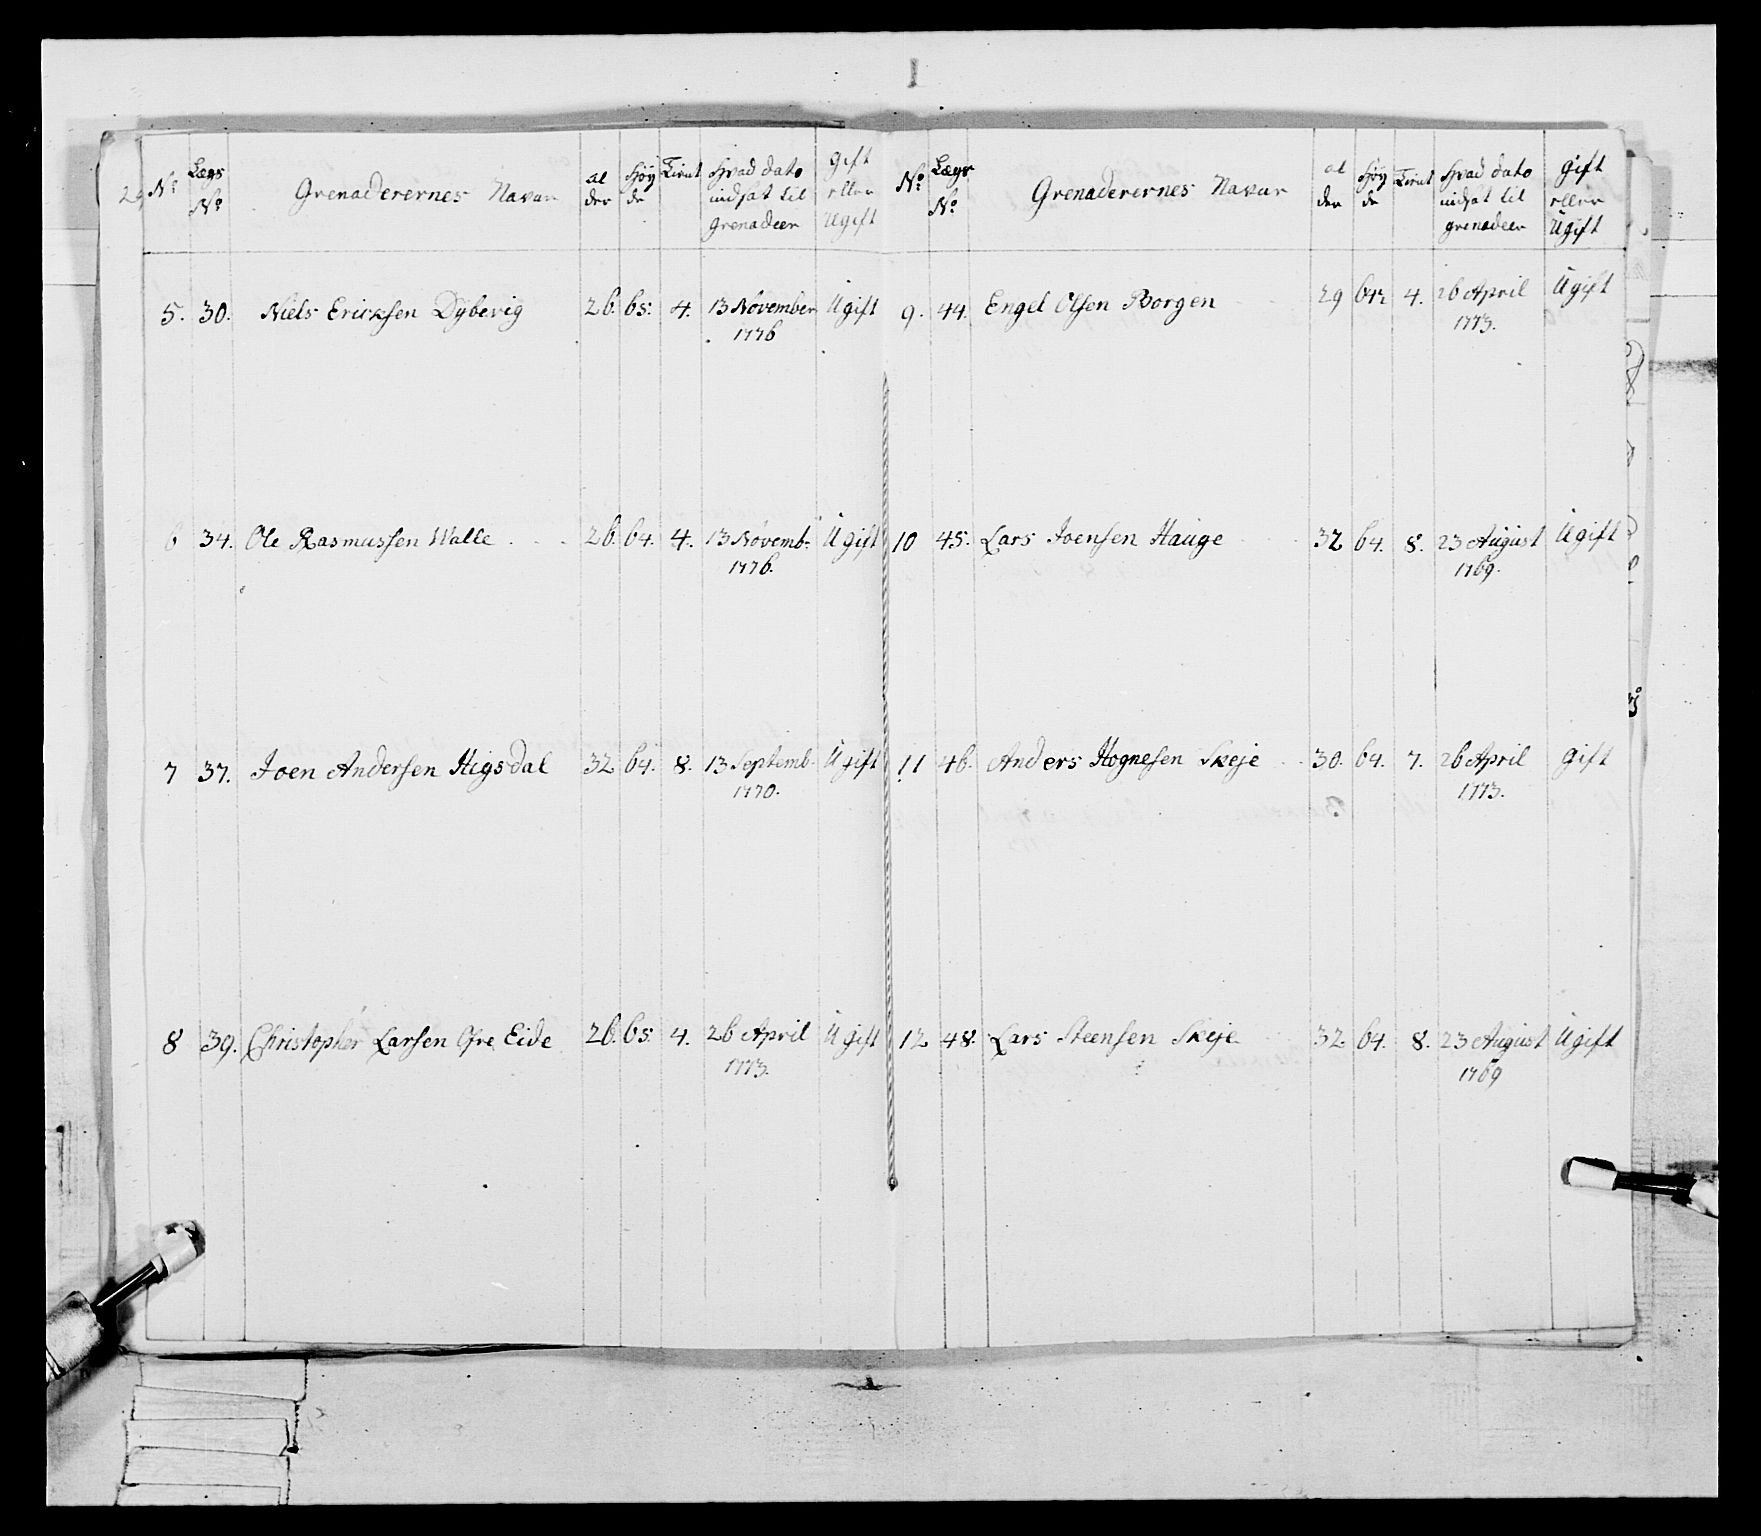 24
No Lægs No Grenaderernes Navne al der Høy de Tient Hvad dato indsat til grenadeer gift eller Ugift
5. 30. Niels Ericksen Dybevig 26. 65. 4. 13 November 1776 Ugift
6 34. Ole Rasmussen Walle 26. 64. 4. 13 Novemb: 1776. Ugift
7 37. Joen Andersen Higsdal 32 64. 8. 13 Septemb. 1770. Ugift
8 39. Christopher Larsen Øfre Eide 26. 65. 4. 26 April 1773. Ugift
No Lægs No Grenaderernes Navne al der Høy de Tient Hvad dato indsat til grenadeer gift eller Ugift
9. 44. Engel Olsen Borgen 29 64½ 4. 26 April 1773. Ugift
10 45. Lars Joensen Hauge 32 64. 8. 23 August 1769. Ugift
11 46. Anders Hognesen Skeje 30. 64. 7. 26 April 1773. gift
12 48. Lars Steensen Skeje 32. 64. 8. 23 August 1769 Ugift